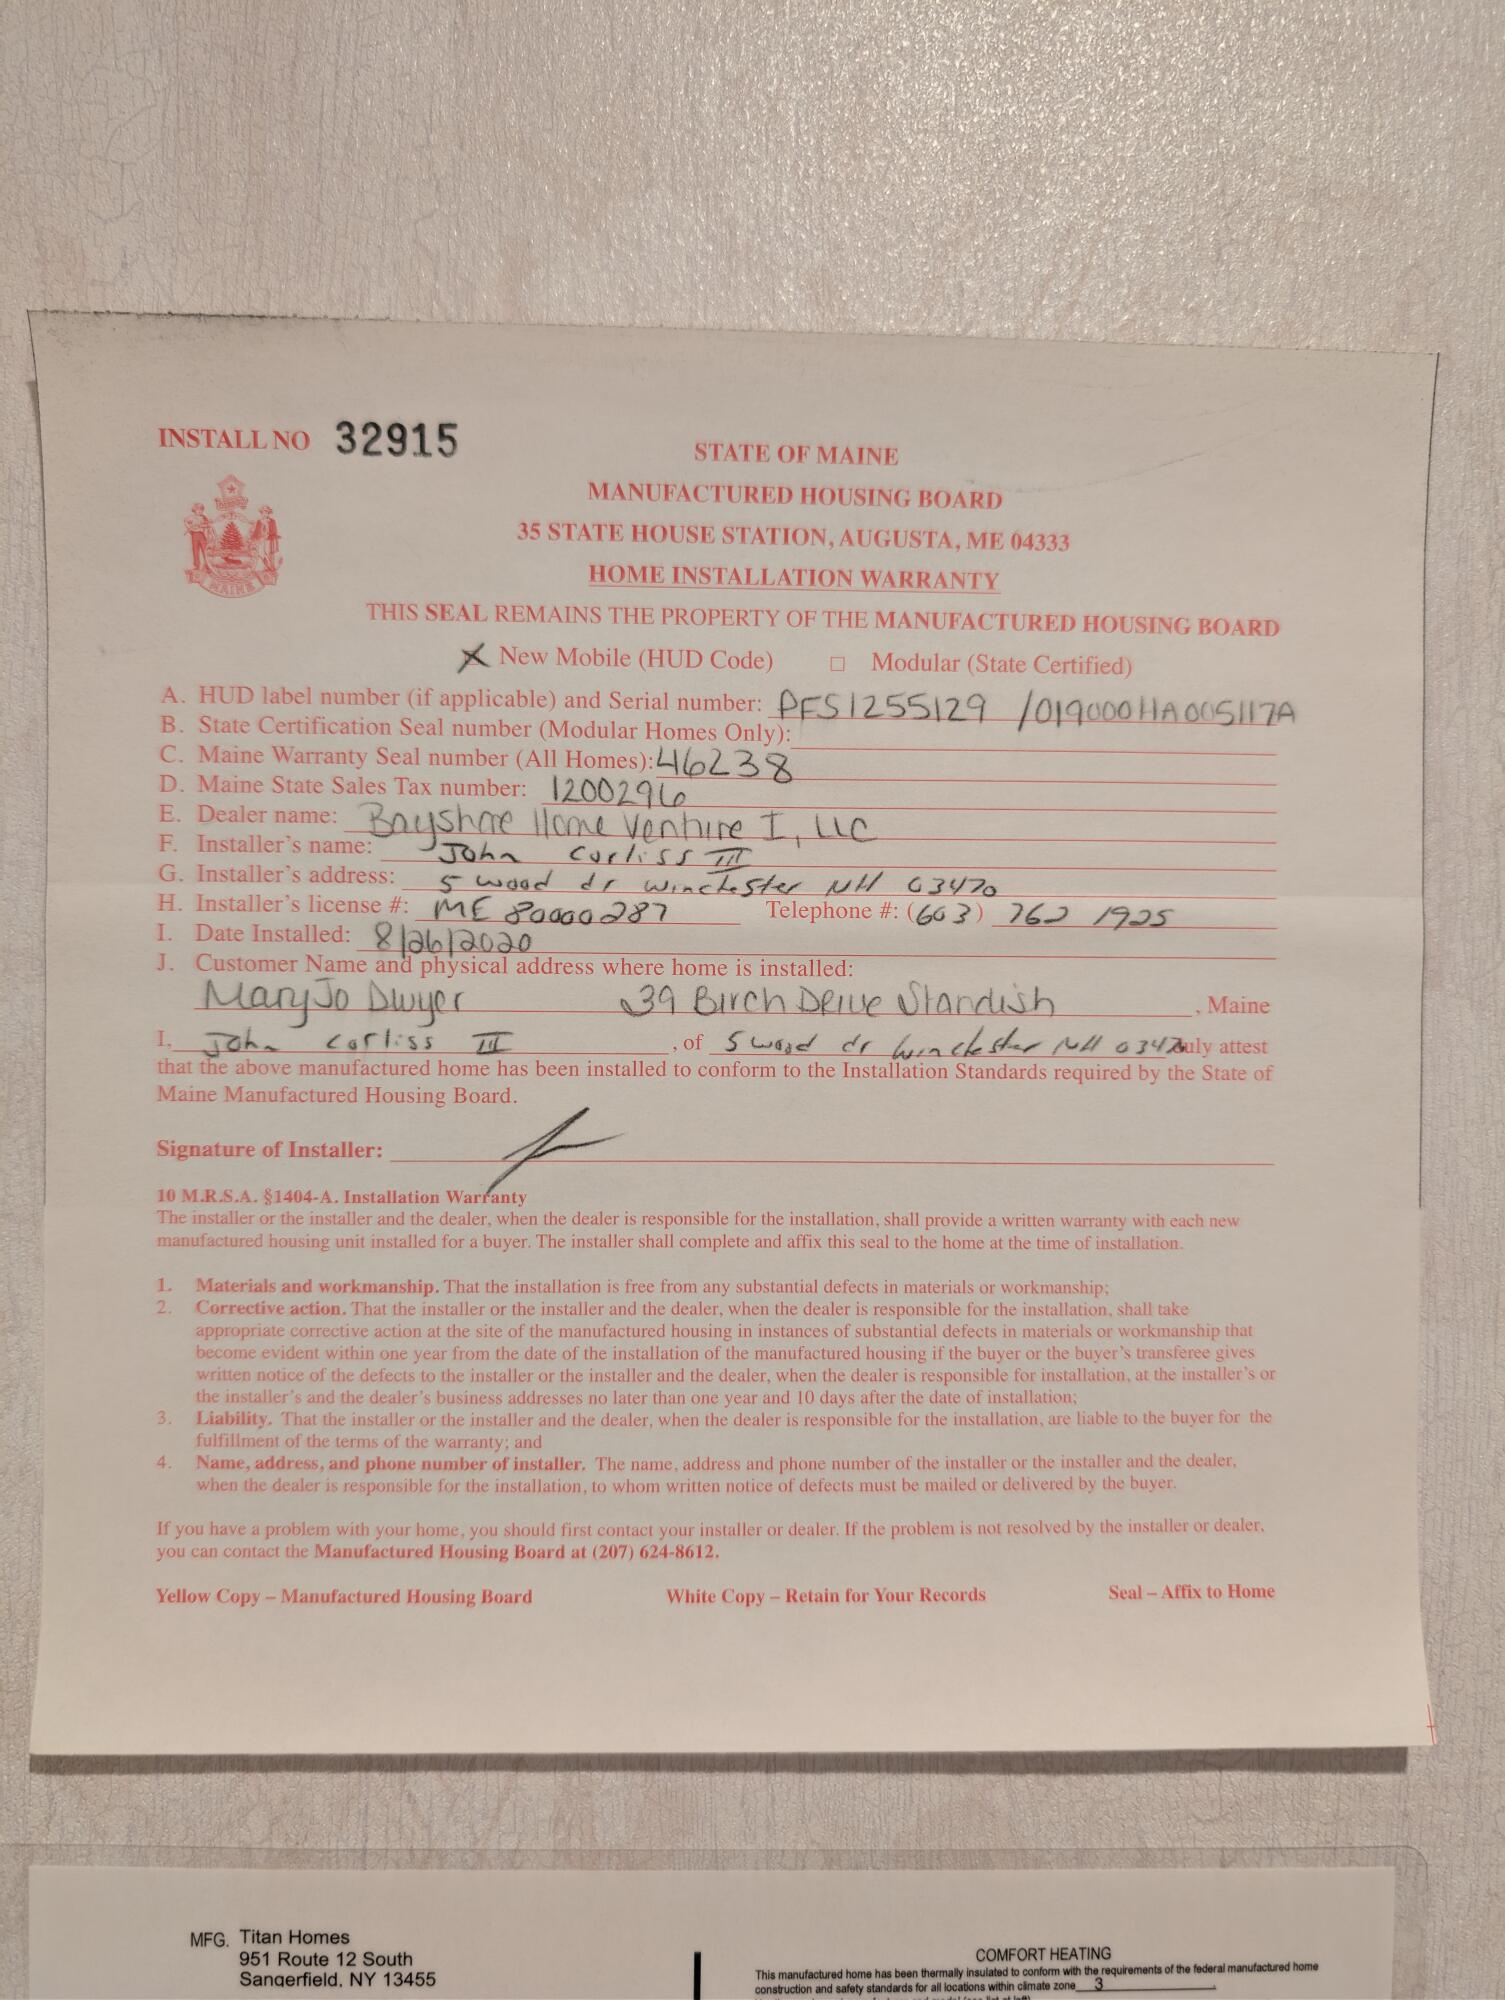 INSTALL NO 32915
STATE OF MAINE
MANUFACTURED HOUSING BOARD
35 STATE HOUSE STATION, AUGUSTA, ME 04333
HOME INSTALLATION WARRANTY
THIS SEAL REMAINS THE PROPERTY OF THE MANUFACTURED HOUSING BOARD
MAINE
X New Mobile (HUD Code) □ Modular (State Certified)
A. HUD label number (if applicable) and Serial number: PFS1255129 /019000HA005117A
B. State Certification Seal number (Modular Homes Only):
C. Maine Warranty Seal number (All Homes): 46238
D. Maine State Sales Tax number: 1200296
E. Dealer name: Bayshore Home Venture I, LLC
F. Installer's name: John Corliss III
G. Installer's address: 5 wood dr Winchester NH 03470
H. Installer's license #: ME 80000287 Telephone #: (603) 762 1925
I. Date Installed: 8/26/2020
J. Customer Name and physical address where home is installed:
MaryJo Dwyer 39 Birch Drive Standish, Maine
I, John Corliss III, of 5 wood dr Winchester NH 03470 duly attest
that the above manufactured home has been installed to conform to the Installation Standards required by the State of
Maine Manufactured Housing Board.
Signature of Installer:
10 M.R.S.A. §1404-A. Installation Warranty
The installer or the installer and the dealer, when the dealer is responsible for the installation, shall provide a written warranty with each new
manufactured housing unit installed for a buyer. The installer shall complete and affix this seal to the home at the time of installation.
1. Materials and workmanship. That the installation is free from any substantial defects in materials or workmanship;
2. Corrective action. That the installer or the installer and the dealer, when the dealer is responsible for the installation, shall take
appropriate corrective action at the site of the manufactured housing in instances of substantial defects in materials or workmanship that
become evident within one year from the date of the installation of the manufactured housing if the buyer or the buyer's transferee gives
written notice of the defects to the installer or the installer and the dealer, when the dealer is responsible for installation, at the installer's or
the installer's and the dealer's business addresses no later than one year and 10 days after the date of installation;
3. Liability. That the installer or the installer and the dealer, when the dealer is responsible for the installation, are liable to the buyer for the
fulfillment of the terms of the warranty; and
4. Name, address, and phone number of installer. The name, address and phone number of the installer or the installer and the dealer,
when the dealer is responsible for the installation, to whom written notice of defects must be mailed or delivered by the buyer.
If you have a problem with your home, you should first contact your installer or dealer. If the problem is not resolved by the installer or dealer,
you can contact the Manufactured Housing Board at (207) 624-8612.
Yellow Copy – Manufactured Housing Board White Copy – Retain for Your Records Seal – Affix to Home
MFG. Titan Homes
951 Route 12 South
Sangerfield, NY 13455
COMFORT HEATING
This manufactured home has been thermally insulated to conform with the requirements of the federal manufactured home
construction and safety standards for all locations within climate zone 3